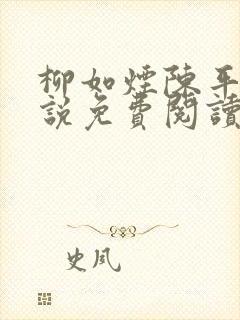 柳如煙陳平
說免費閱讀
史夙